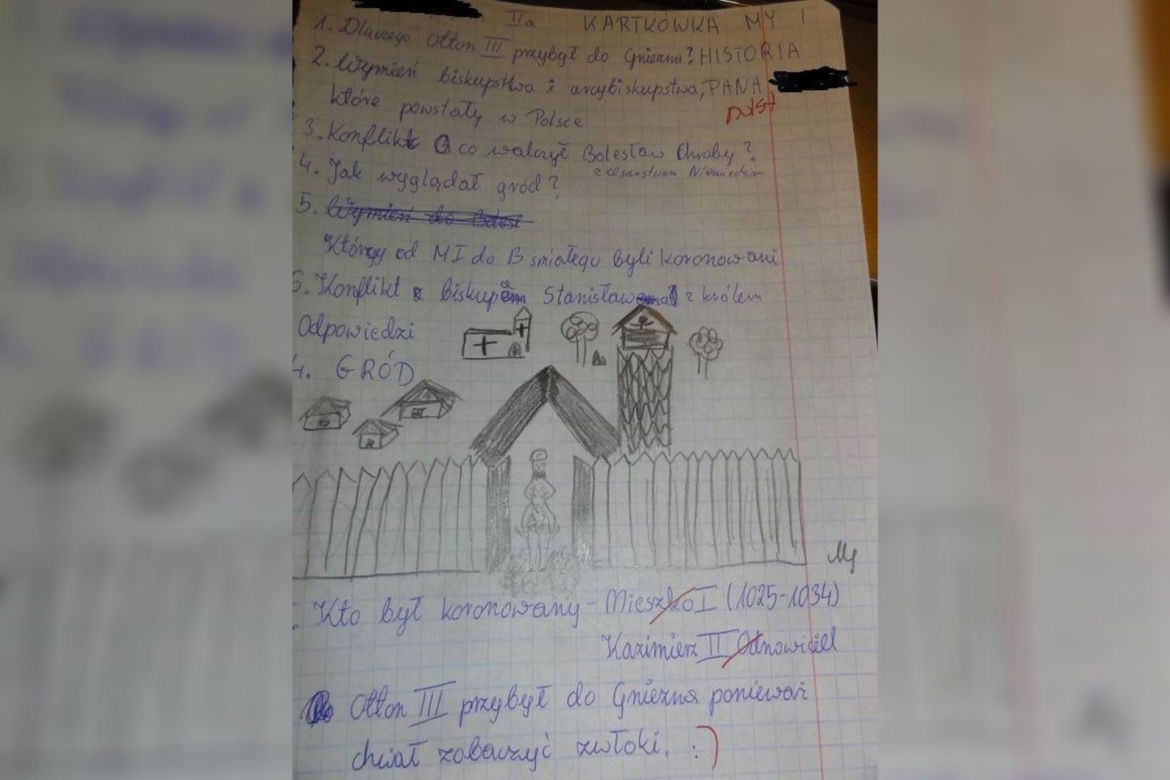 IIa KARTKÓWKA MY
1. Dlaczego Otton III przybył do Gniezna? HISTORIA
2. Wymień biskupstwa i arcybiskupstwa, PANA
które powstały w Polsce
ndst
3. Konflikt O co walczył Bolesław Chroby?
z cesarstwem Niemieckim
4. Jak wyglądał gród?
5. Wymień do Bolesł
Którzy od MI do B śmiałego byli koronowani
6. Konflikt biskupa Stanisława z królem
Odpowiedzi
4. GRÓD
Kto był koronowany - Mieszko I (1025-1034)
Kazimierz II Odnowiciel
Otton III przybył do Gniezna ponieważ
chciał zobaczyć zwłoki. :)